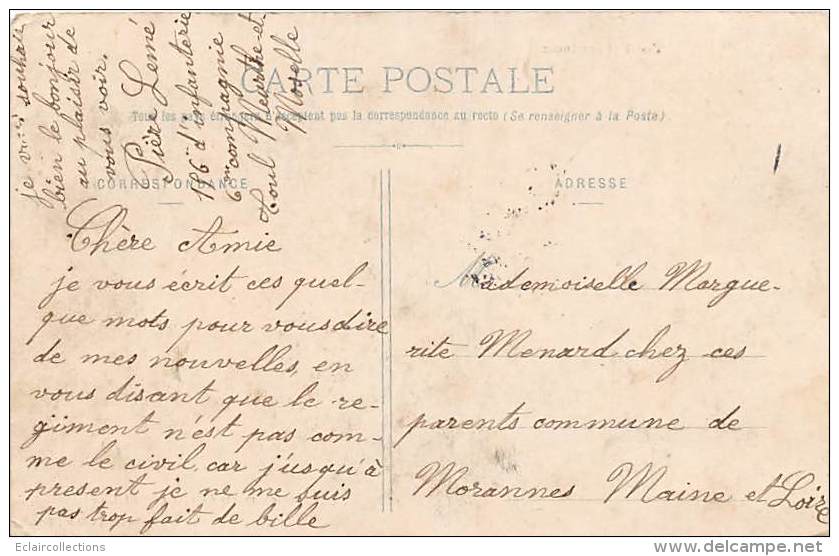 CARTE POSTALE
Tous les pays étrangers n'acceptent pas la correspondance au recto (Se renseigner à la Poste)
CORRESPONDANCE
ADRESSE
Chère Amie
je vous écrit ces quel-
que mots pour vous dire
de mes nouvelles, en
vous disant que le re-
giiment n'est pas com-
me le civil car j'usqu'à
present je ne me suis
pas trop fait de bille
je vous souhais
bien le bonjour
au plaisir de
vous voir.
Pière Lemé
186 d'infanterie
6me compagnie
Toul Meurthe et
Moselle
Mademoiselle Margue-
rite Menard chez ces
parents commune de
Morannes Maine et Loire
Eclaircollections
delcampe.net